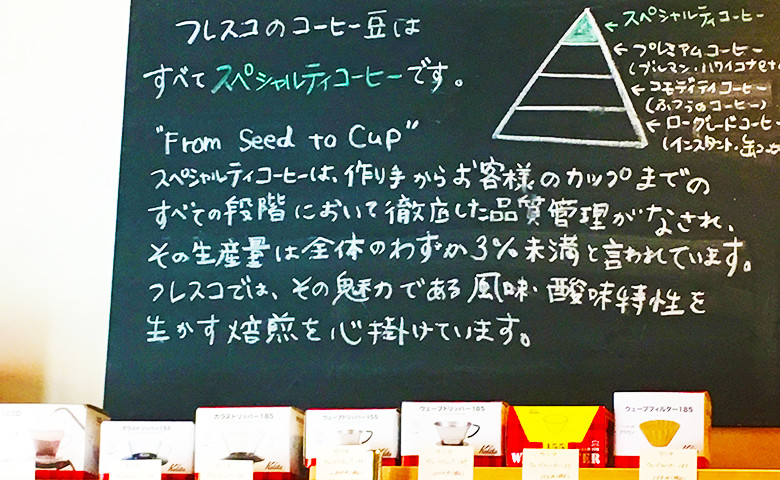 フレスコのコーヒー豆は
すべてスペシャルティコーヒーです。
"From Seed to Cup"
スペシャルティコーヒーは、作り手からお客様のカップまでの
すべての段階において徹底した品質管理がなされ、
その生産量は全体のわずか3%未満と言われています。
フレスコでは、その魅力である風味・酸味特性を
生かす焙煎を心掛けています。
←スペシャルティコーヒー
←プレミアムコーヒー
(ブルマン・ハワイコナetc
←コモディティコーヒー
(ふつうのコーヒー)
←ローグレードコーヒー
(インスタント・缶コ
ガラスドリッパー185
Kalita
ウェーブドリッパー155
Kalita
ウェーブドリッパー185
Kalita
155
ウェーブフィルター185
Kalita